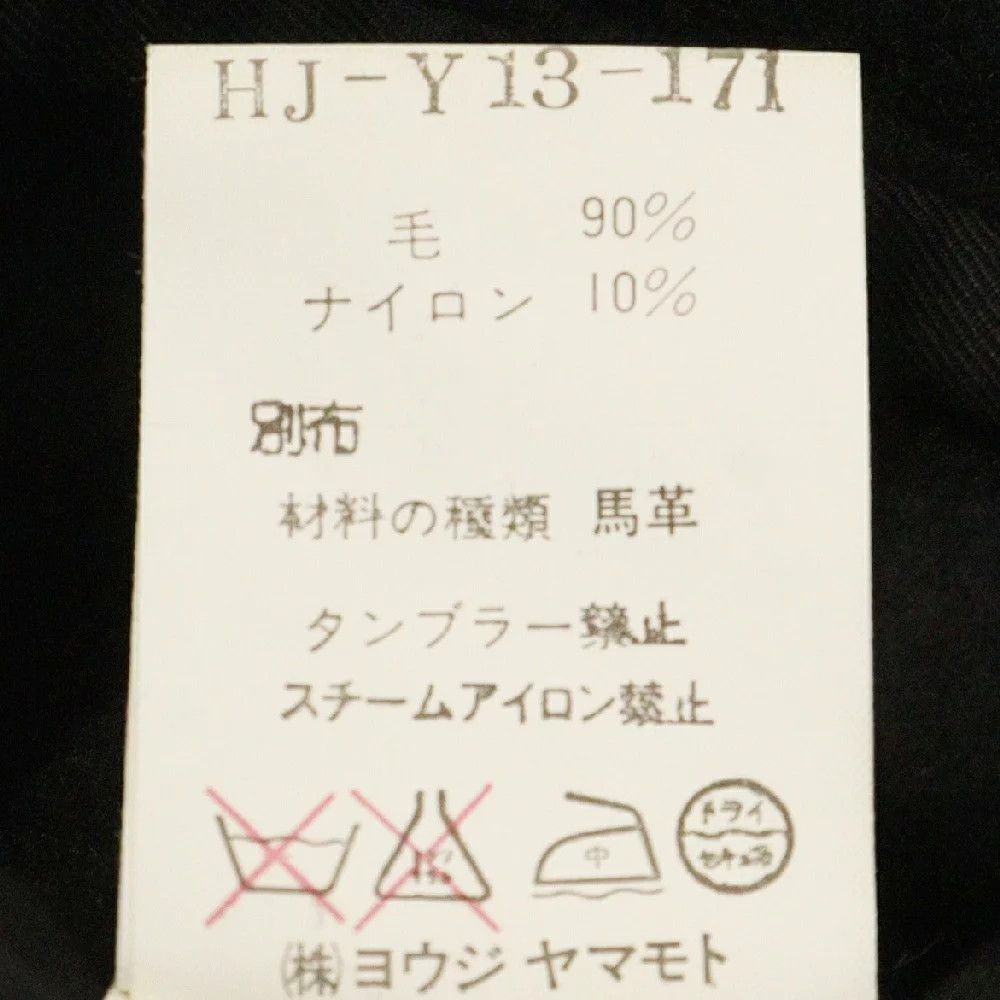 HJ-Y13-171
毛 90%
ナイロン 10%
別布
材料の種類 馬革
タンブラー禁止
スチームアイロン禁止
中
ドライ
セキユ系
㈱ヨウジヤマモト